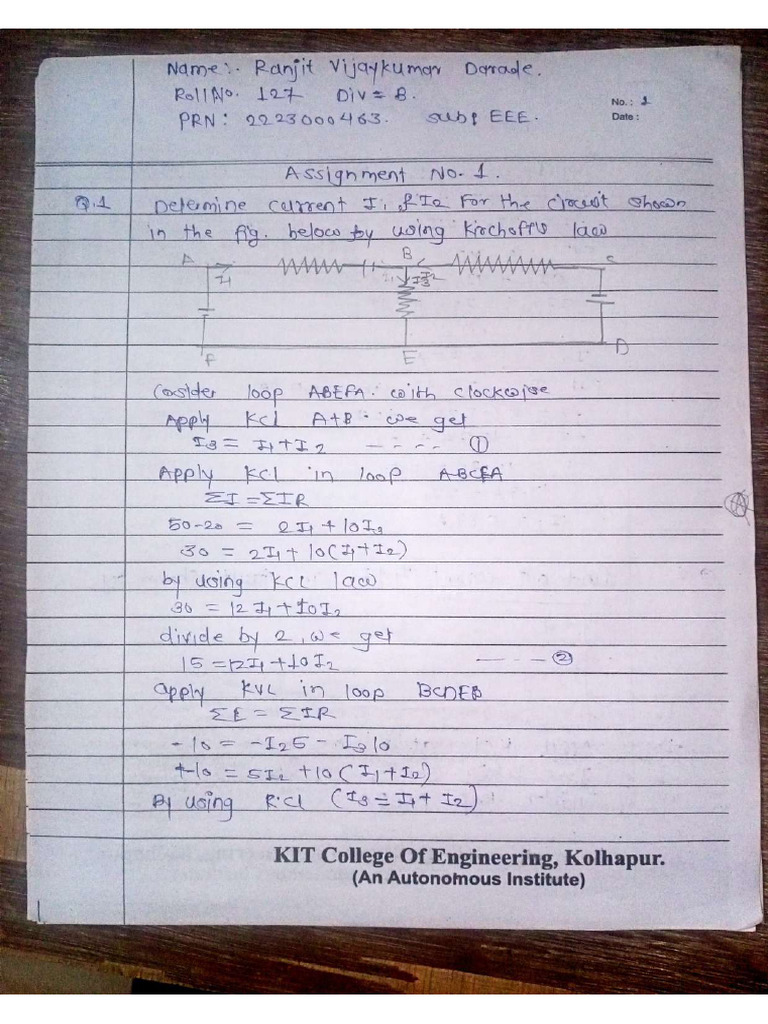 Name:- Ranjit Vijaykumar Darade.
Roll No. 127 Div = B.
No. : 1
PRN: 2223000463. sub: EEE.
Date :
Assignment No. 1.
Q.1 Determine current I1 & I2 For the circuit shown
in the fig. below by using Kirchoff's law
A I1 B I2 C
I3
F E D
Cosider loop ABEFA. with clockwise
Apply KCL A+B. we get
I3 = I1 + I2 ---- ①
Apply KCl in loop ABCEA
ΣI = ΣIR
50-20 = 2I1 + 10I3
30 = 2I1 + 10(I1+I2)
by using KCL law
30 = 12I1 + 10I2
divide by 2, we get
15 = 12I1 + 10I2 ---- ②
apply KVL in loop BCDEB
ΣE = ΣIR
-10 = -I25 - I310
+-10 = 5I2 + 10(I1+I2)
By using K.Cl (I3 = I1 + I2)
KIT College Of Engineering, Kolhapur.
(An Autonomous Institute)